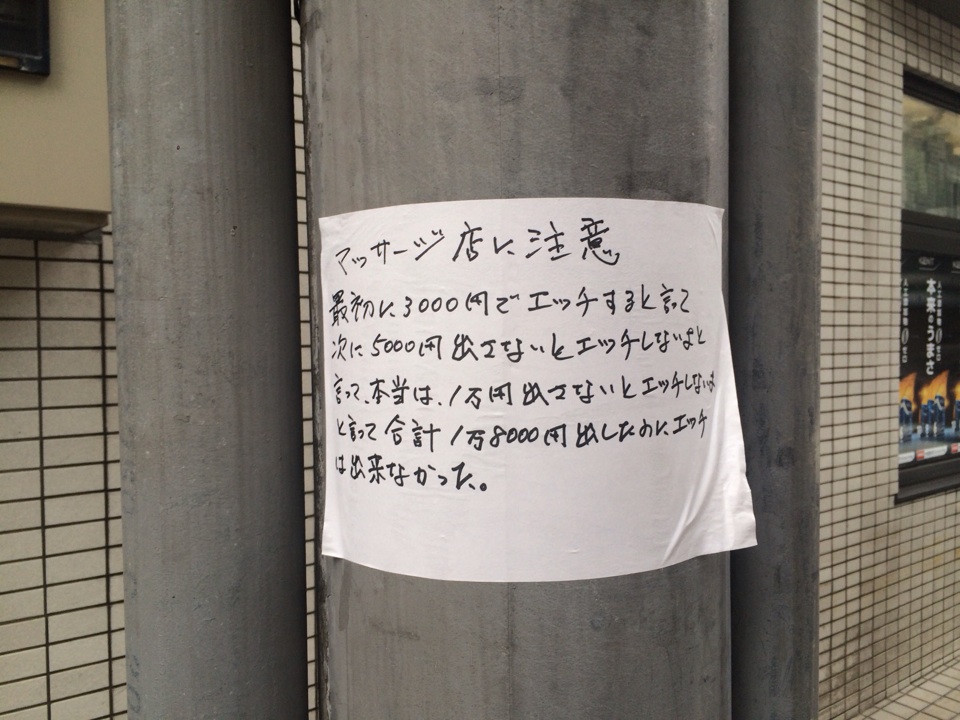 マッサージ店に注意
最初に3000円でエッチすると言って
次に5000円出さないとエッチしないよと
言って、本当は、1万円出さないとエッチしないよ
と言って合計1万8000円出したのにエッチ
は出来なかった。
本来のうまさ